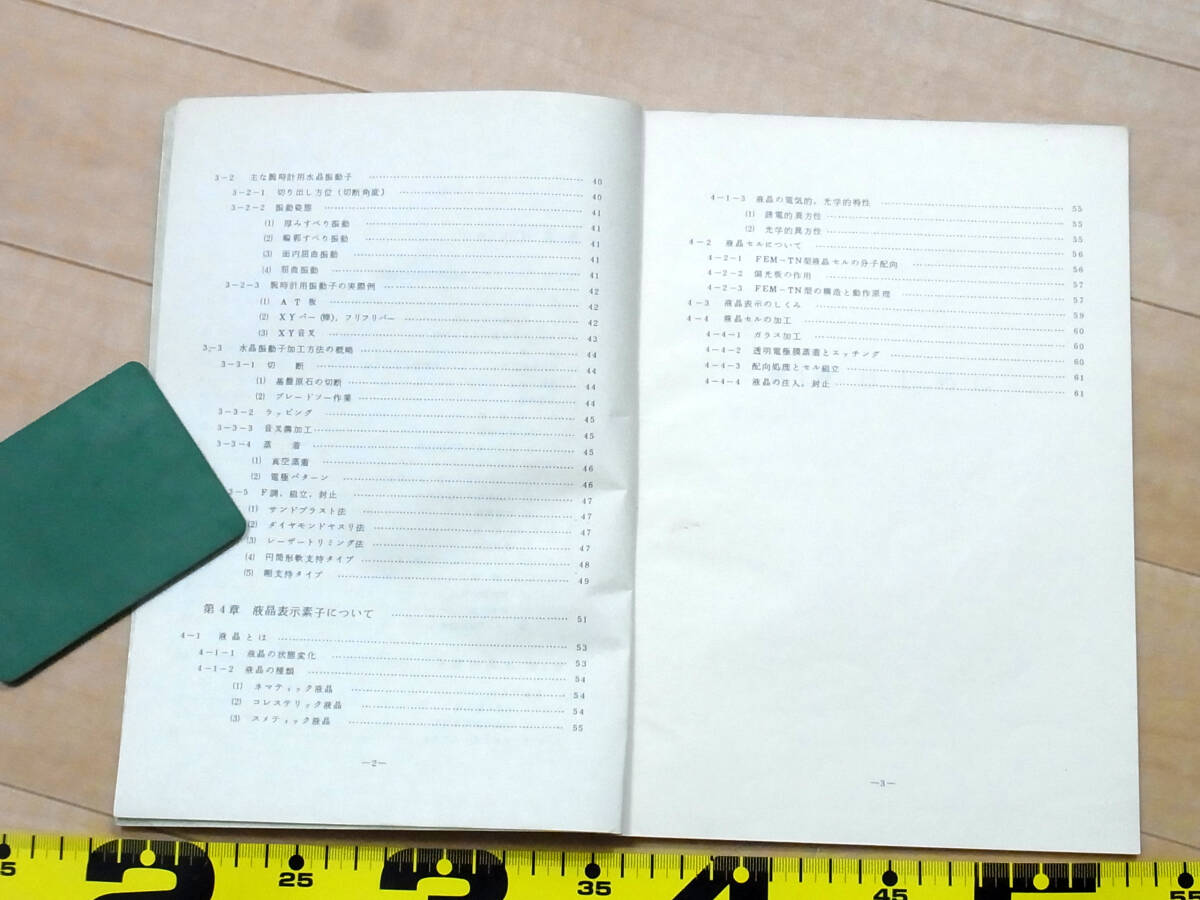 3-2 主な腕時計用水晶振動子 40
3-2-1 切り出し方位(切断角度) 40
3-2-2 振動姿態 41
(1) 厚みすべり振動 41
(2) 輪郭すべり振動 41
(3) 面内屈曲振動 41
(4) 屈曲振動 41
3-2-3 腕時計用振動子の実際例 42
(1) AT板 42
(2) XYバー(棒),フリフリバー 42
(3) XY音叉 43
3-3 水晶振動子加工方法の概略 44
3-3-1 切断 44
(1) 基盤原石の切断 44
(2) ブレードソー作業 44
3-3-2 ラッピング 45
3-3-3 音叉溝加工 45
3-3-4 蒸着 45
(1) 真空蒸着 46
(2) 電極パターン 46
3-5 F調,組立,封止 47
(1) サンドブラスト法 47
(2) ダイヤモンドヤスリ法 47
(3) レーザートリミング法 47
(4) 円筒形軟支持タイプ 48
(5) 剛支持タイプ 49
第4章 液晶表示素子について 51
4-1 液晶とは 53
4-1-1 液晶の状態変化 53
4-1-2 液晶の種類 54
(1) ネマティック液晶 54
(2) コレステリック液晶 54
(3) スメティック液晶 55
—2—
4-1-3 液晶の電気的,光学的特性 55
(1) 誘電的異方性 55
(2) 光学的異方性 55
4-2 液晶セルについて 56
4-2-1 FEM-TN型液晶セルの分子配向 56
4-2-2 偏光板の作用 57
4-2-3 FEM-TN型の構造と動作原理 57
4-3 液晶表示のしくみ 59
4-4 液晶セルの加工 60
4-4-1 ガラス加工 60
4-4-2 透明電極膜蒸着とエッチング 60
4-4-3 配向処理とセル組立 61
4-4-4 液晶の注入,封止 61
—3—
5 2 25 3 35 4 45 5 55